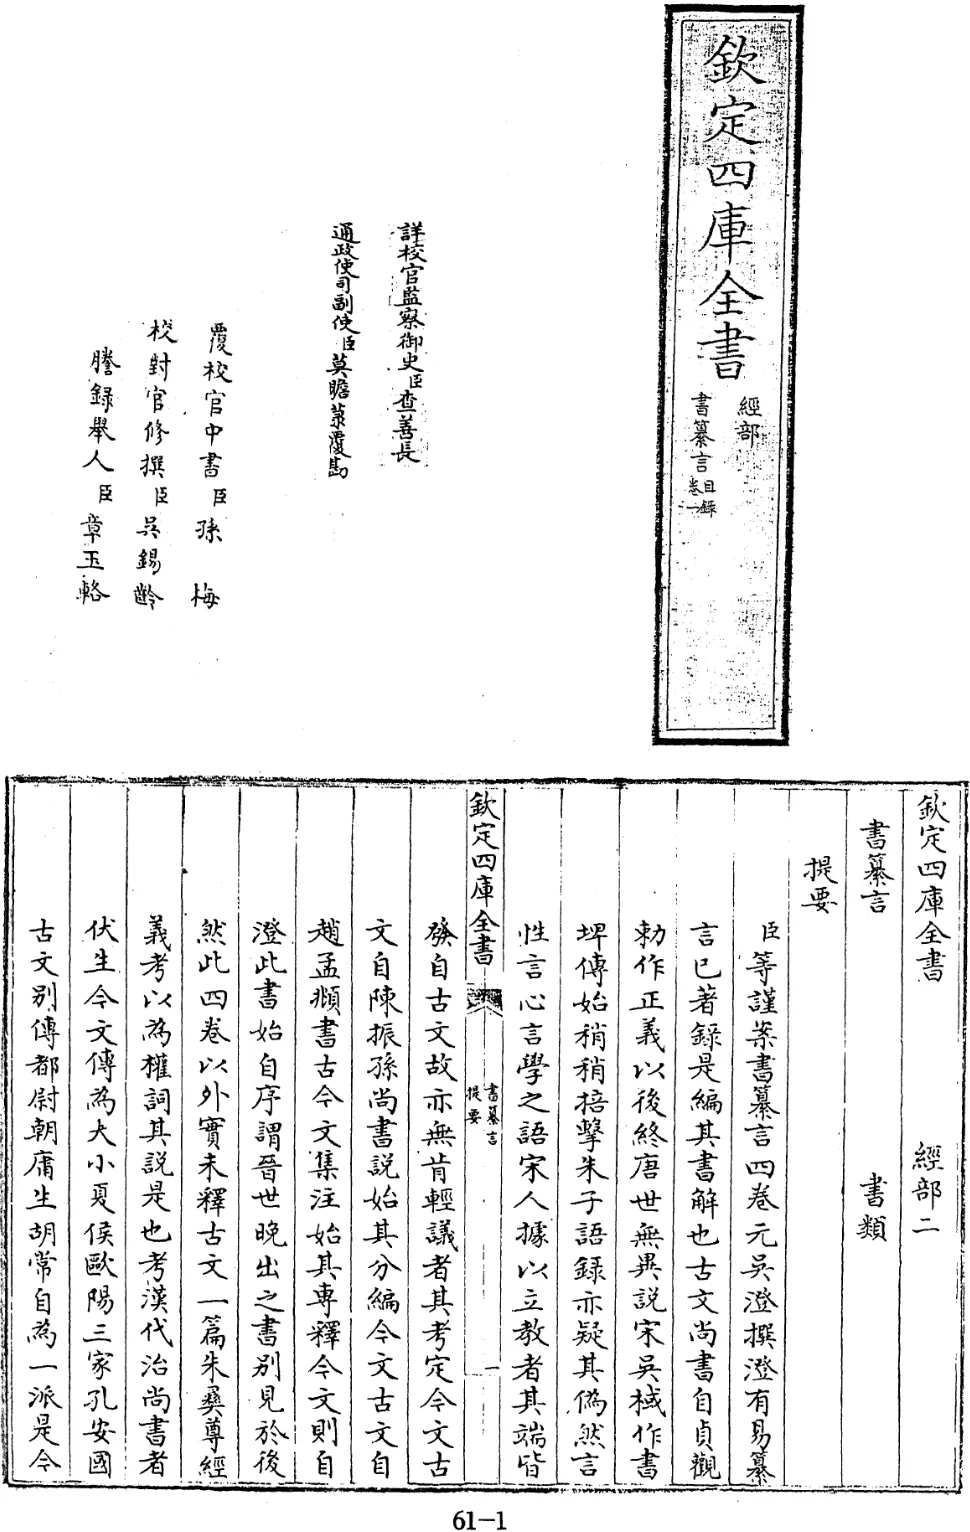 欽定四庫全書
經部
書纂言
目錄
卷一
詳校官監察御史臣查善長
通政使司副使臣莫瞻菉覆勘
覆校官中書臣孫梅
校對官修撰臣吳錫齡
謄錄舉人臣章玉輅
欽定四庫全書 經部二
書纂言 書類
提要
臣等謹案書纂言四卷元吳澄撰澄有易纂
言已著錄是編其書解也古文尚書自貞觀
勅作正義以後終唐世無異說宋吳棫作書
埤傳始稍稍掊擊朱子語錄亦疑其偽然言
性言心言學之語宋人據以立教者其端皆
欽定四庫全書 書纂言
提要 一
發自古文故亦無肯輕議者其考定今文古
文自陳振孫尚書説始其分編今文古文自
趙孟頫書古今文集注始其專釋今文則自
澄此書始自序謂晉世晚出之書別見於後
然此四卷以外實未釋古文一篇朱彞尊經
義考以為權詞其説是也考漢代治尚書者
伏生今文傳為大小夏侯歐陽三家孔安國
古文別傳都尉朝庸生胡常自為一派是今
61-1